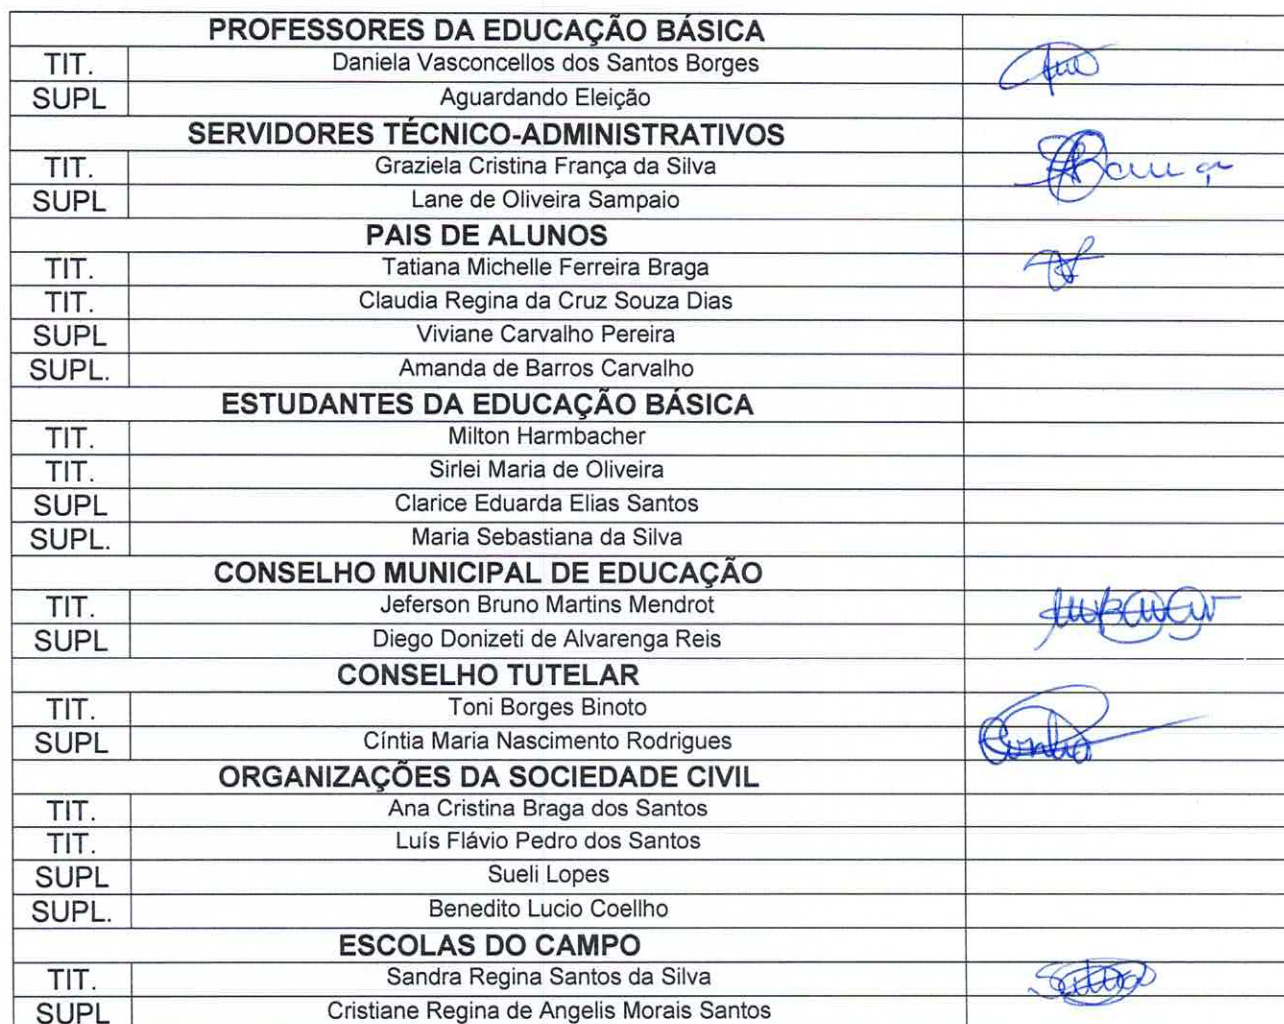 PROFESSORES DA EDUCAÇÃO BÁSICA
TIT. Daniela Vasconcellos dos Santos Borges
SUPL Aguardando Eleição
SERVIDORES TÉCNICO-ADMINISTRATIVOS
TIT. Graziela Cristina França da Silva
SUPL Lane de Oliveira Sampaio
PAIS DE ALUNOS
TIT. Tatiana Michelle Ferreira Braga
TIT. Claudia Regina da Cruz Souza Dias
SUPL Viviane Carvalho Pereira
SUPL. Amanda de Barros Carvalho
ESTUDANTES DA EDUCAÇÃO BÁSICA
TIT. Milton Harmbacher
TIT. Sirlei Maria de Oliveira
SUPL Clarice Eduarda Elias Santos
SUPL. Maria Sebastiana da Silva
CONSELHO MUNICIPAL DE EDUCAÇÃO
TIT. Jeferson Bruno Martins Mendrot
SUPL Diego Donizeti de Alvarenga Reis
CONSELHO TUTELAR
TIT. Toni Borges Binoto
SUPL Cíntia Maria Nascimento Rodrigues
ORGANIZAÇÕES DA SOCIEDADE CIVIL
TIT. Ana Cristina Braga dos Santos
TIT. Luís Flávio Pedro dos Santos
SUPL Sueli Lopes
SUPL. Benedito Lucio Coellho
ESCOLAS DO CAMPO
TIT. Sandra Regina Santos da Silva
SUPL Cristiane Regina de Angelis Morais Santos